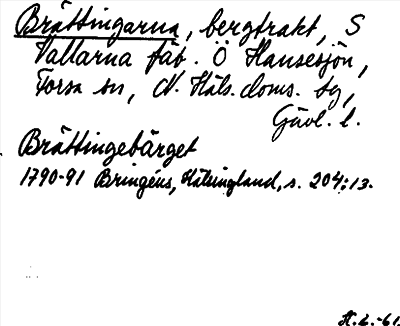 Brättingarna, bergtrakt, S
Vallarna fäb. Ö Hansesjön,
Forsa sn, N. Häls. doms. sg,
Gävl. l.
Brättingebärget
1790-91 Bringéus, Hälsingland, s. 204:13.
H.L.-61